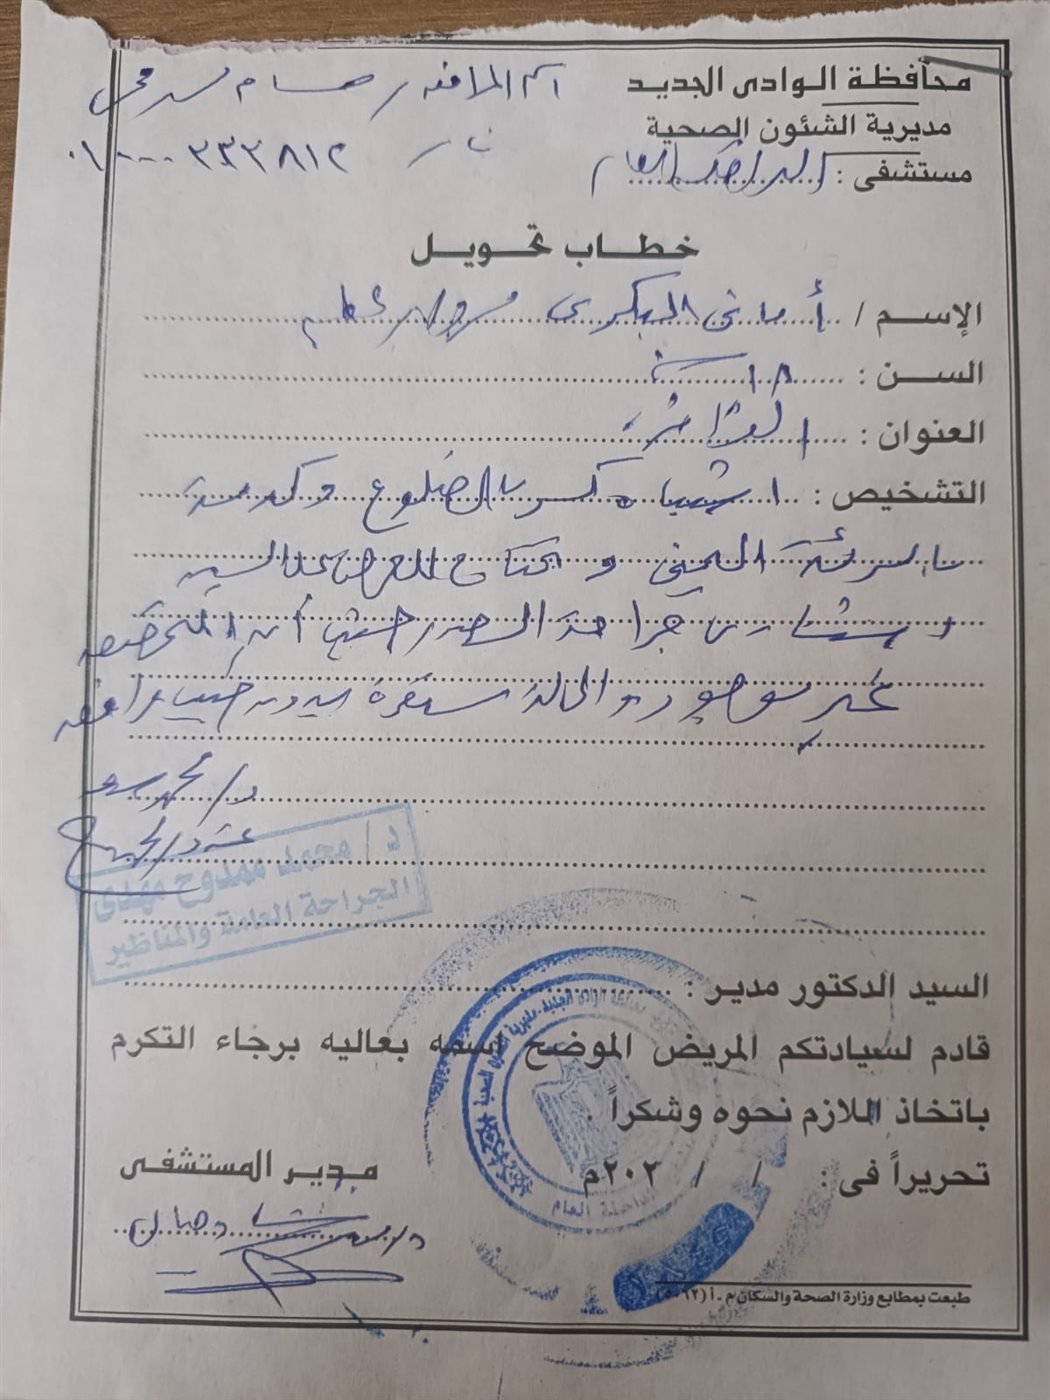 محافظة الوادى الجديد
مديرية الشئون الصحية
مستشفى : الداخلة العام
اسم المرافق / حسام
٠١٠٠٠٣٣٣٨١٢
خطاب تحويل
الإسم / أمانى البكرى
السن : ١٨ سنة
العنوان : القاهرة
التشخيص : اشتباه كسر بالضلوع وكدمة
بالرئة اليمنى و يحتاج للعرض على السيد
استشارى جراحة الصدر حيث أن التخصص
غير موجود و الحالة مستقرة
د/ محمد
د / محمد ممدوح مهدى
الجراحة العامة والمناظير
السيد الدكتور مدير :
قادم لسيادتكم المريض الموضح اسمه بعاليه برجاء التكرم
باتخاذ اللازم نحوه وشكراً .
تحريراً فى : / / ٢٠٢م
مدير المستشفى
طبعت بمطابع وزارة الصحة والسكان م